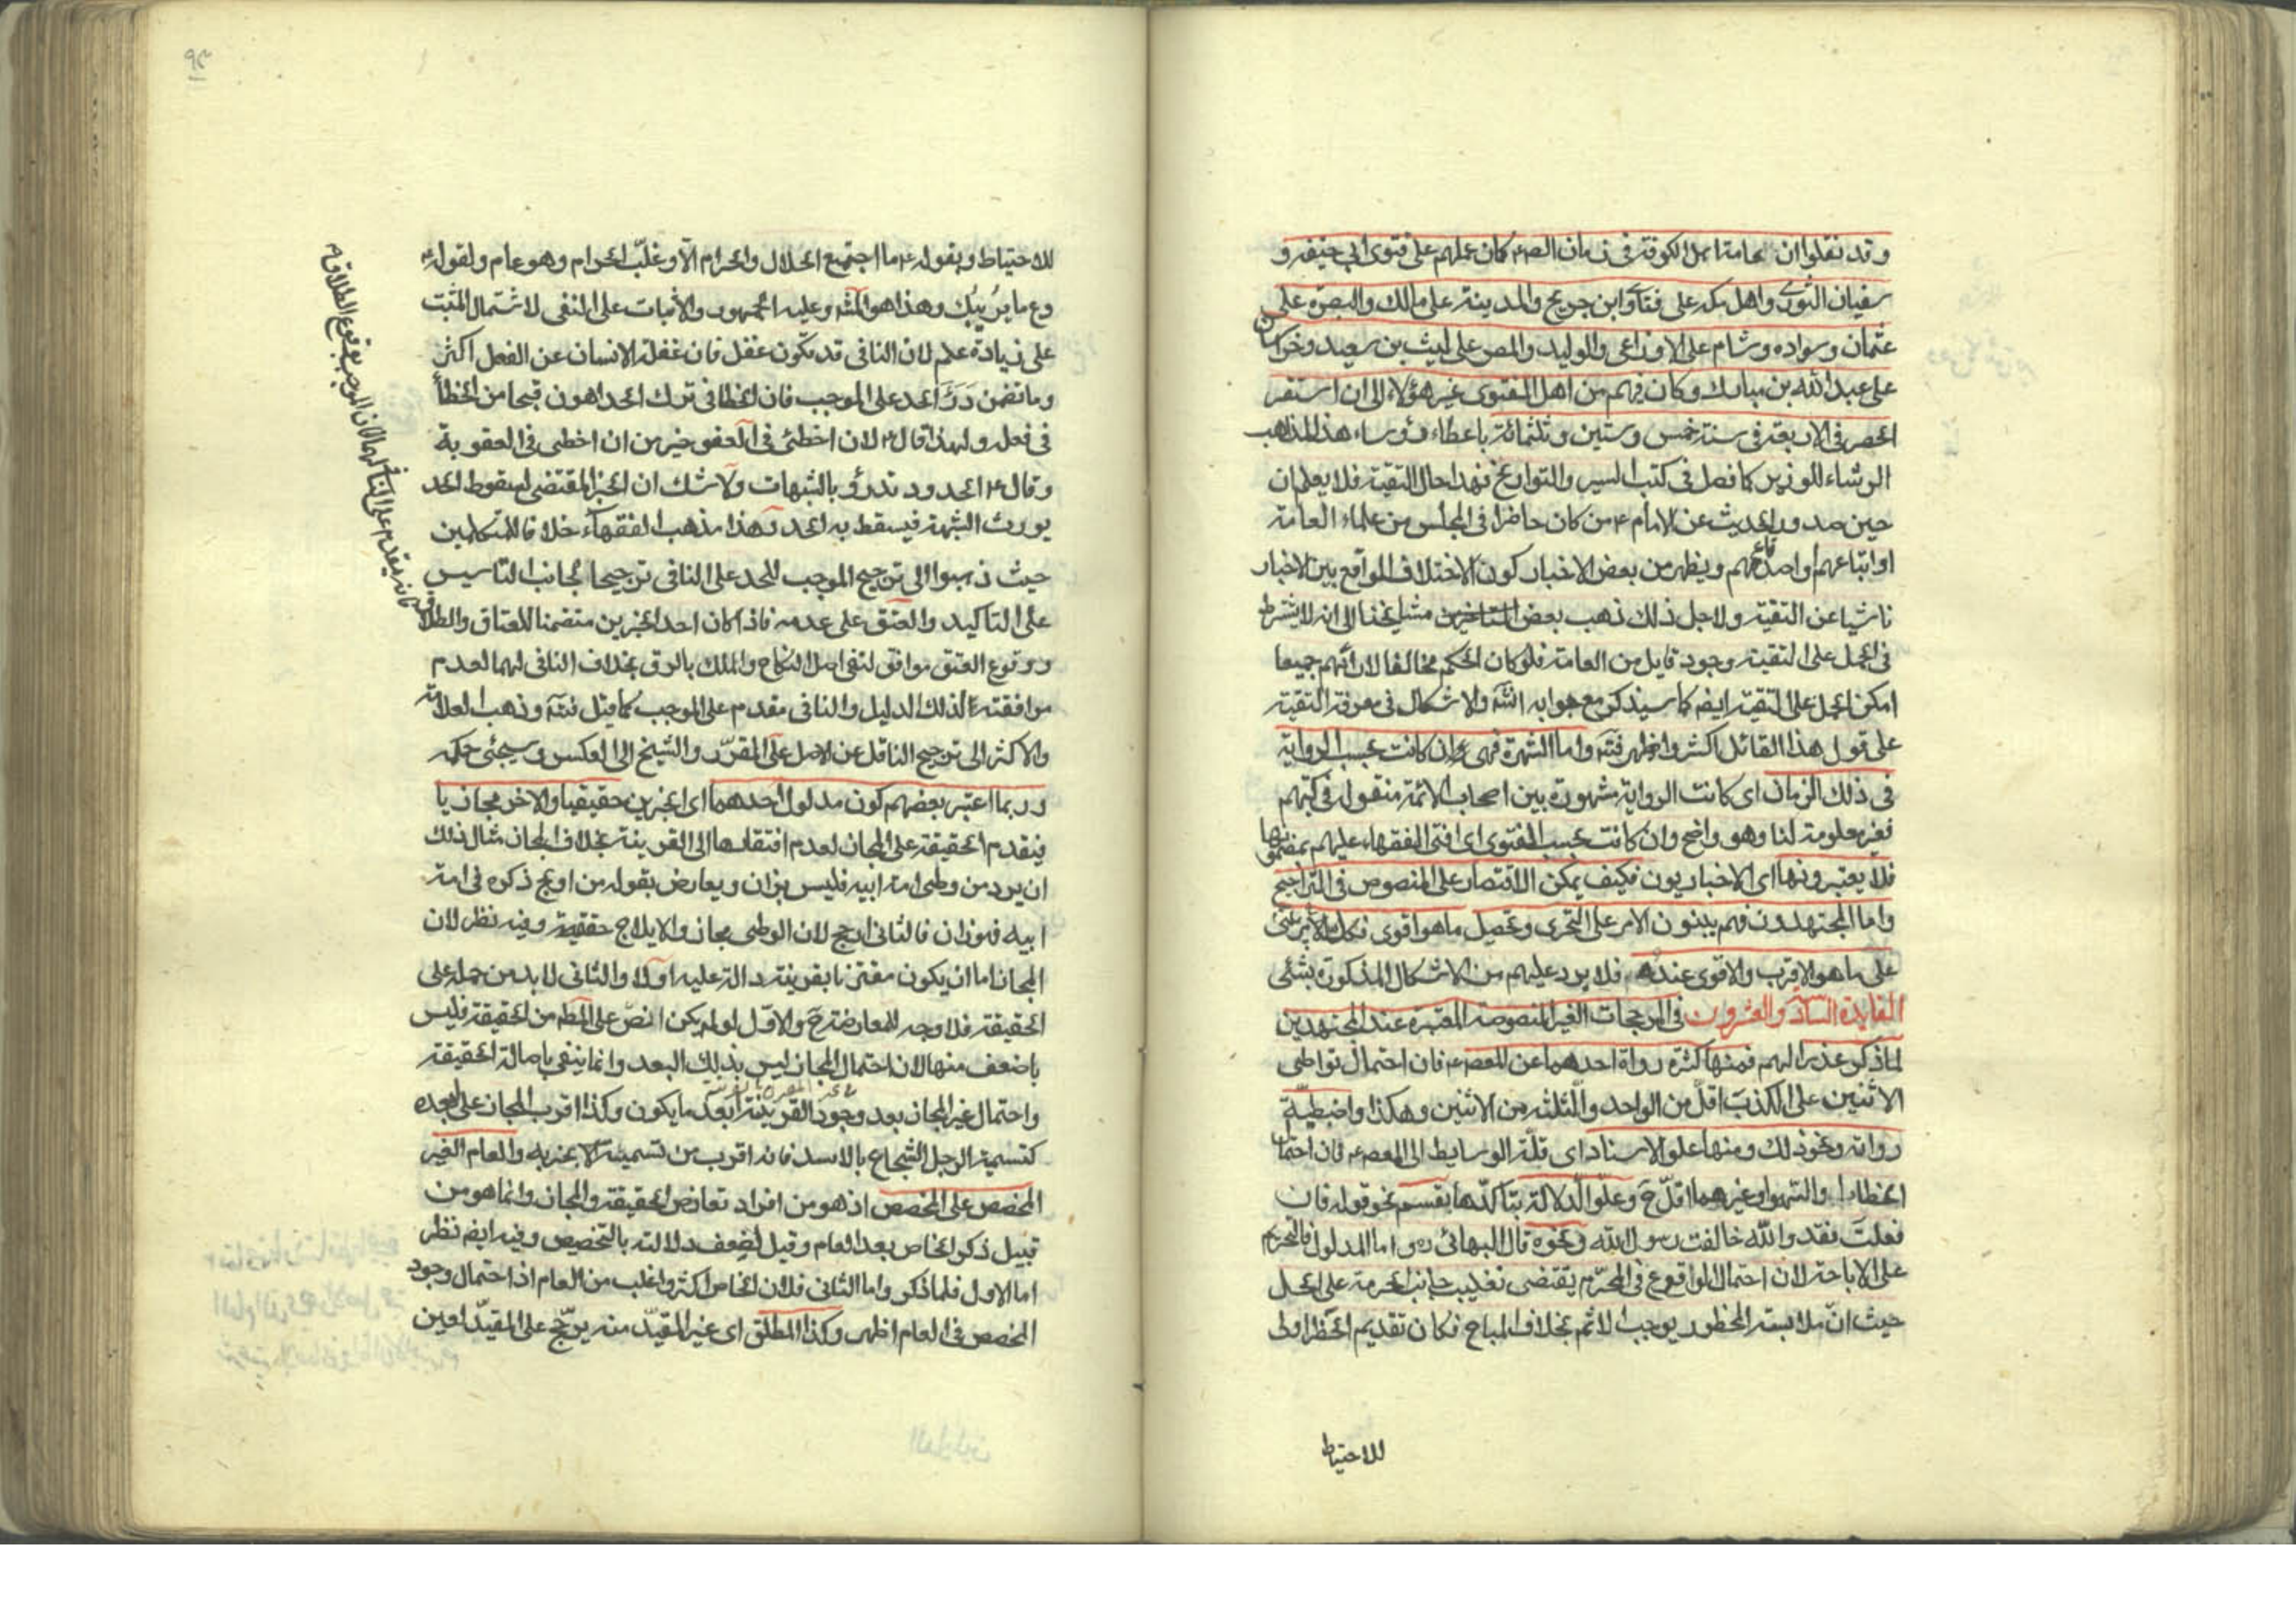 وقد نقلوا ان عامة اهل الكوفة في زمان الص ع كان عملهم على فتوى ابي حنيفه و
سفيان الثوري واهل مكه على فتاوى ابن جريح والمدينة على مالك والبصره على
عثمان وسواده وشام على الاوزاعى والوليد والمصر على ليث بن سعيد وخراسان
على عبد الله بن مبارك وكان فيهم من اهل الفتوى غير هؤلاء الى ان استقر
الحصر في الاربعة في سنة خمس وستين وثلثمائة باعطاء رؤساء هذا المذاهب
الرشاء للوزير كما فصل في كتب السير والتواريخ فهذا حال التقية فلا يعلم ان
حين صدور الحديث عن الامام ع من كان حاضرا في المجلس من علماء العامة
او اتباعهم او اصدقائهم ويظهر من بعض الاخبار كون الاختلاف الواقع بين الاخبار
ناشيا عن التقية ولاجل ذلك ذهب بعض مشايخنا الى انه لا يشترط
في الحمل على التقية وجود قايل من العامة فلو كان الحكم مخالفا لارائهم جميعا
امكن الحمل على التقية ايضم كما سيذكر مع جوابه انشه والاشكال في معرفة التقية
على قول هذا القائل اكثر واظهر فتنه واما الشهرة فهى وان كانت بحسب الرواية
في ذلك الزمان اى كانت الرواية مشهورة بين اصحاب الائمة منقوله في كتبهم
فغير معلومة لنا وهو واضح وان كانت بحسب الفتوى اى افتى الفقهاء عليهم بمضمونها
فلا يعتبرونها اى الاخباريون فكيف يمكن الاقتصار على المنصوص في التراجيح
واما المجتهدون فهم يبنون الامر على التحرى وتحصيل ما هو اقوى فكل الامر يبتنى
على ما هو الاقرب والاقوى عنده فلا يرد عليهم من الاشكال المذكورة بشئى
الفايدة السادسة والعشرون في المرجحات الغير المنصوصة المعتبرة عند المجتهدين
لما ذكر عذرا لهم فمنها كثرة رواة احدهما عن المعصم ع فان احتمال تواطى
الاثنين على الكذب اقل من الواحد والثلثه من الاثنين وهكذا واضبطية
رواته ونحو ذلك ومنها علو الاسناد اى قلة الوسايط الى المعصم ع فان احتمال
الخطاء والسهو وغيرهما اقل ح وعلو الدلالة بتاكدها بقسم نحو قوله فان
فعلت فقد والله خالفت رسول الله ونحوه قال البهائى ره واما المدلول فالتحريم
على الاباحة لان احتمال الوقوع في المحرم يقتضى تغليب جانب الحرمة على الحل
حيث ان ملابسة المحظور يوجب الاثم بخلاف المباح فكان تقديم الحظر اولى
للاحتياط
للاحتياط وبقوله ع ما اجتمع الحلال والحرام الا وغلب الحرام وهو عام ولقوله ع
دع ما يريبك وهذا هو المشه وعليه الجمهور والاثبات على المنفى لاشتمال المثبت
على زيادة علم لان النافى قد يكون غفل فان غفلة الانسان عن الفعل اكثر
وما تضمن درء الحد على الموجب فان الخطا في ترك الحد اهون قبحا من الخطأ
في فعله ولهذا قال ع لان اخطئ في العفو خير من ان اخطى في العقوبة
وقال ع الحدود تدرؤ بالشبهات ولا شك ان الخبر المقتضى لسقوط الحد
يورث الشبهة فيسقط به الحد وهذا مذهب الفقهاء خلافا للمتكلمين
حيث ذهبوا الى ترجيح الموجب للحد على النافى ترجيحا لجانب التاسيس
على التاكيد والعتق على عدمه فاذا كان احد الخبرين متضمنا للعتاق والطلاق
فانه يقدم على النافي لهما لان الموجب بوقوع الطلاق
ووقوع العتق موافق لنفى اصل النكاح والملك بالرق بخلاف النافى لهما لعدم
موافقته لذلك الدليل والنافى مقدم على الموجب كما قيل فتنه وذهب العلامة
والاكثر الى ترجيح الناقل عن الاصل على المقرر والشيخ الى العكس وسيجئى حكمه
وربما اعتبر بعضهم كون مدلول احدهما اى الخبرين حقيقيا والاخر مجازيا
فيقدم الحقيقة على المجاز لعدم افتقارها الى القرينة بخلاف المجاز مثال ذلك
ان يرد من وطى امة ابيه فليس بزان ويعارض بقوله من اولج ذكره في امة
ابيه فهو زان فالثانى ارجح لان الوطى مجاز والايلاج حقيقة وفيه نظر لان
المجاز اما ان يكون مقترنا بقرينة دالة عليه او لا والثانى لابد من حمله على
الحقيقة فلا وجه للمعارضة ح والاول لو لم يكن انص على المطم من الحقيقة فليس
باضعف منها لان احتمال المجاز ليس بذلك البعد وانما ينفى باصالة الحقيقة
واحتمال غير المجاز بعد وجود القرينة ابعد ما يكون وكذا اقرب المجاز على ابعده
كتسمية الرجل الشجاع بالاسد فانه اقرب من تسمية والعام الغير
المخصص على المخصص اذ هو من افراد تعارض الحقيقة والمجاز وانما هو من
قبيل ذكر الخاص بعد العام وقيل لضعف دلالته بالتخصيص وفيه ايضم نظر
اما الاول فلما ذكر واما الثانى فلان الخاص اكثر واغلب من العام اذ احتمال وجود
المخصص في العام اظهر وكذا المطلق اى غير المقيد منه يرجح على المقيد لعين